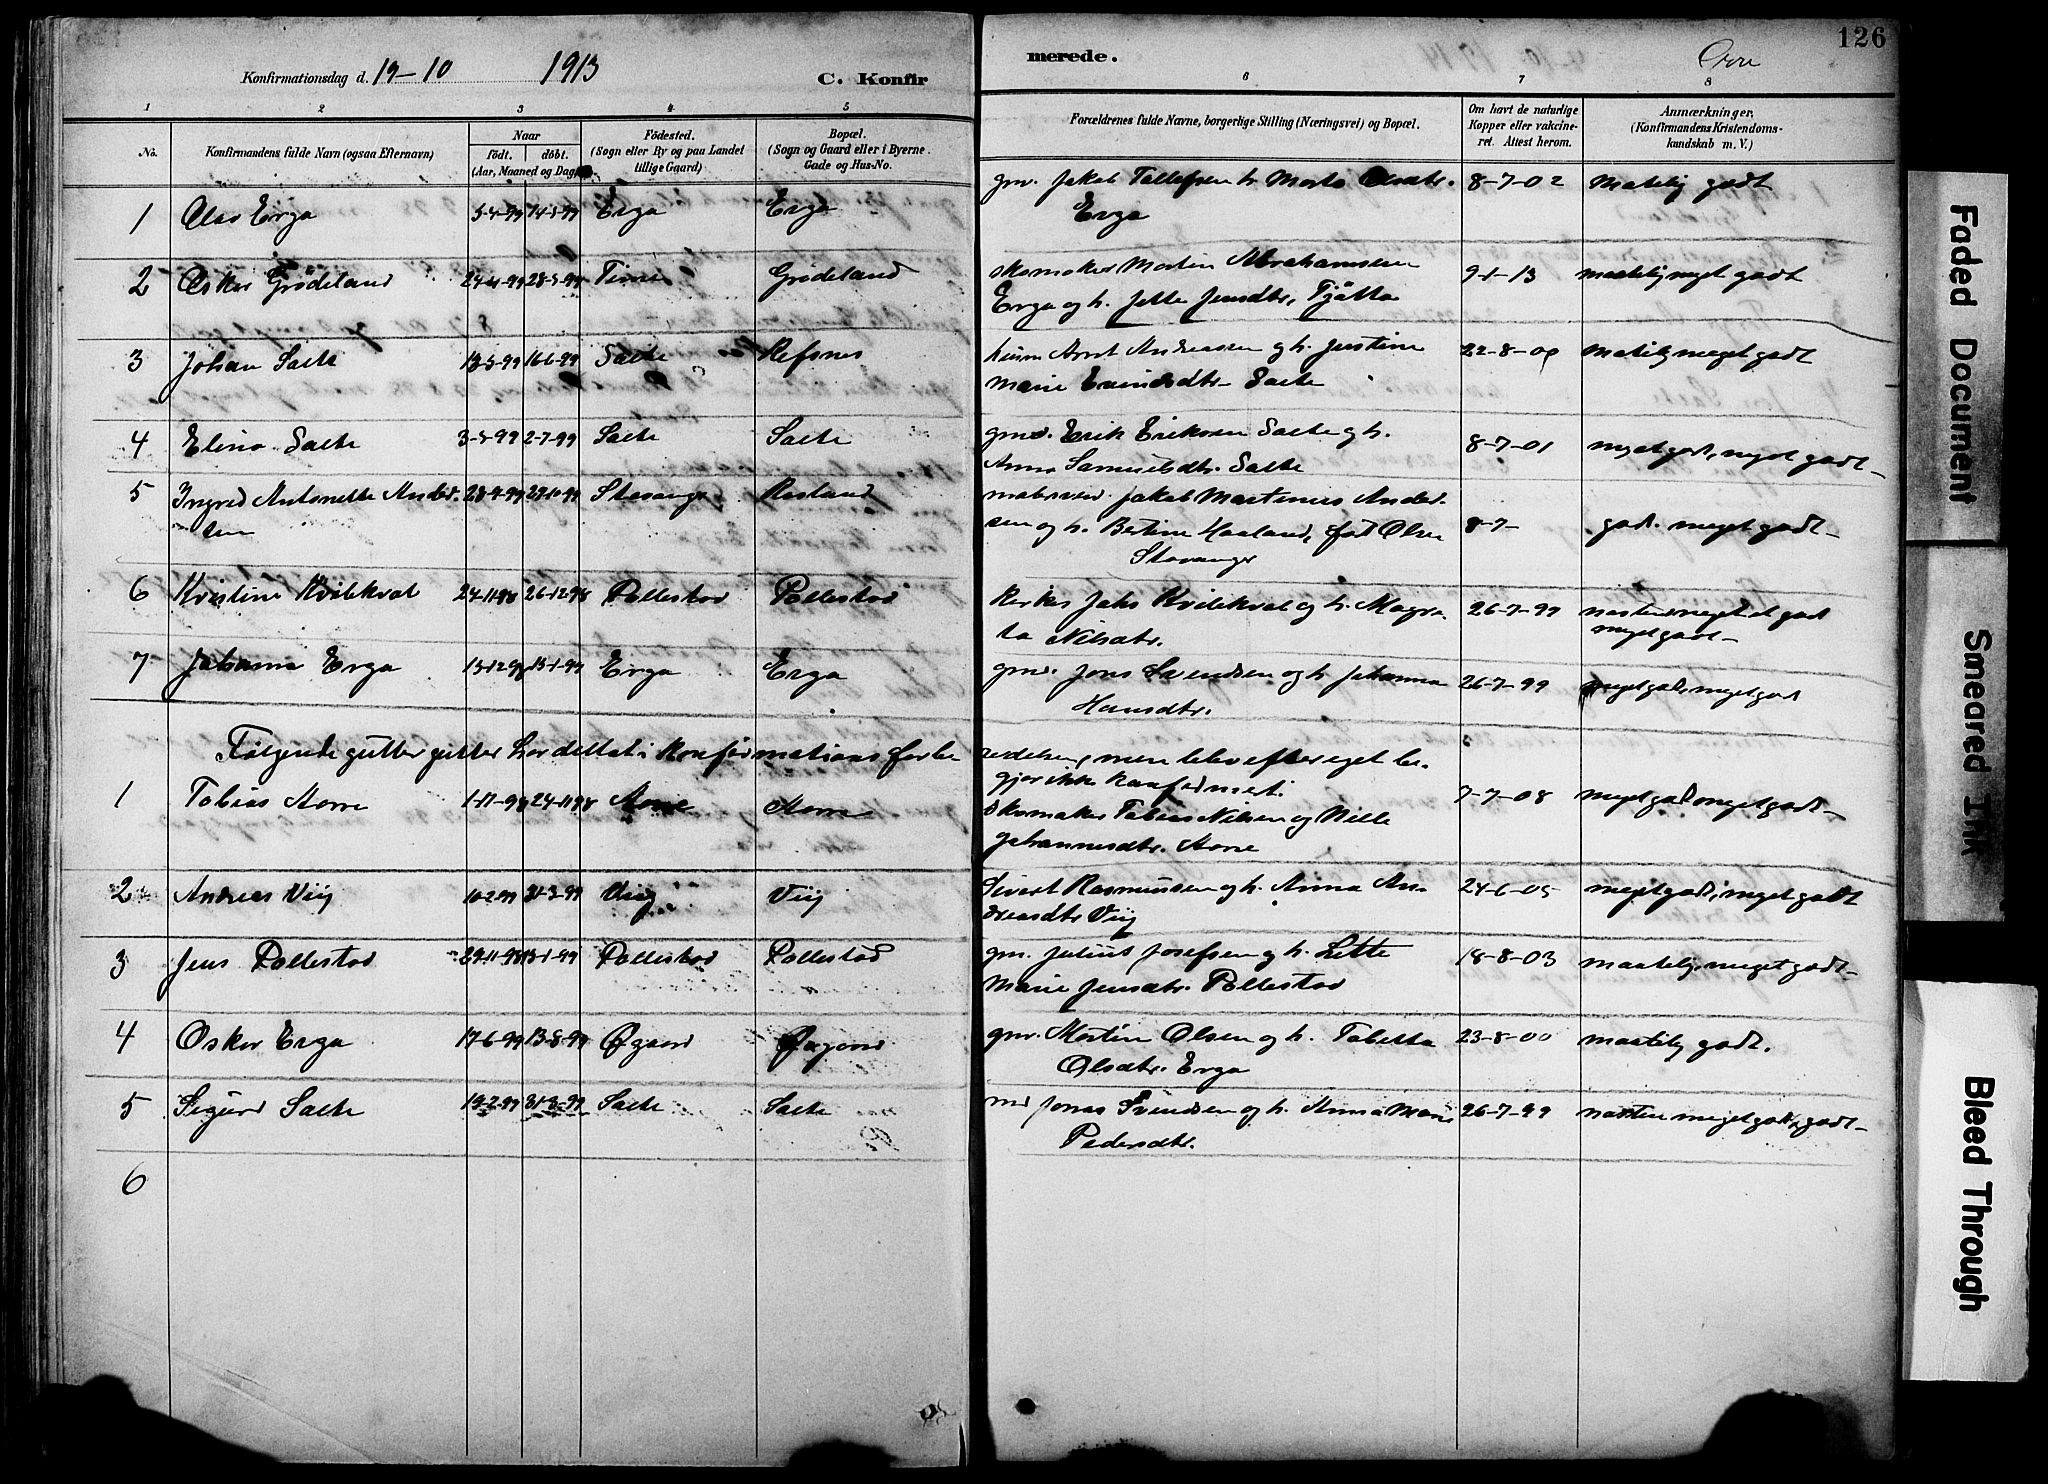 126
Konfirmationsdag d. 19-10 1913 C. Konfir merede. Orre
1 2 3 4 5 6 7 8
No.
Konfirmandens fulde Navn (ogsaa Efternavn)
Naar
født. døbt.
(Aar, Maaned og Dag)
Fødested.
(Sogn eller By og paa Landet
tillige Gaard)
Bopæl.
(Sogn og Gaard eller i Byerne
Gade og Hus-No.
Forældrenes fulde Navne, borgerlige Stilling (Næringsvei) og Bopæl.
Om havt de naturlige
Kopper eller vakcine-
ret. Attest herom.
Anmærkninger,
(Konfirmandens Kristendoms-
kundskab m. V.)
1 Olav Erga 5-4-99 14-5-99 Erga Erga gm. Jakob Tollefsen h. Marta Olsdtr. 8-7-02 maatelig godt
Erga
2 Oskar Grödeland 24-4-99 28-5-99 Time Grödeland skomaker Martin Abrahamsen 9-1-13 maatelig meget godt
Erga og h. Jette Jensdtr. Tjötta
3 Johan Salte 13-5-99 16-6-99 Salte Refsnes husm Arnt Andreassen og h. Justine 22-8-00 matelig meget godt
Marie Evindsdtr. Salte
4 Elina Salte 3-5-99 2-7-99 Salte Salte gmd. Erik Eriksen Salte og h. 8-7-01 meget god, meget godt
Anna Samuelsdtr. Salte
5 Ingred Antonette Ander- 28-9-99 29-10-99 Stavanger Rosland Jakob Martinius Ander- 8-7- god. meget godt
sen sen og h. Bertine Haaland, föd Olsen
Stavanger
6 Kristine Kvilekval 24-11-98 26-12-98 Pollestad Pollestad Kirkes. Jahs Kvilekval og h. Magre- 26-7-99 næsten meget god
ta Nilsdtr. meget godt
7 Johanna Erga 13-12-98 15-1-99 Erga Erga gmd. Jons Svendsen og h. Johanna 26-7-99 meget god, meget god
Hansdtr.
Følgende gutter gutter har deltat i konfirmations forbe- redelsen, men blev efter eget be-
gjær ikke konfirmert.
1 Tobias Horre 1-11-98 24-11-98 Horre Horre skomaker Tobias Nilsen og Nille 7-7-08 meget god meget godt
Johannesdtr. Horre
2 Andreas Viig 10-2-99 31-3-99 Viig Viig Sivert Rasmussen og h. Anna An- 24-6-05 meget god, meget godt
dreasdtr Viig
3 Jens Pollestad 29-11-98 15-1-99 Pollestad Pollestad gm. Julius Josefsen og h. Lette 18-8-03 maatelig, meget godt
Marie Jensdtr. Pollestad
4 Oskar Erga 17-6-99 13-8-99 Øgaard Øygard gm. Martin Olsen og h. Tabetta 23-8-00 maatelig godt.
Olsdtr. Erga
5 Sigurd Salte 19-2-99 31-3-99 Salte Salte md Jonas Svendsen og h. Anna Marie 26-7-99 næsten meget godt, godt
Pedersdtr.
6
Faded Document
Smeared Ink
Bleed Through